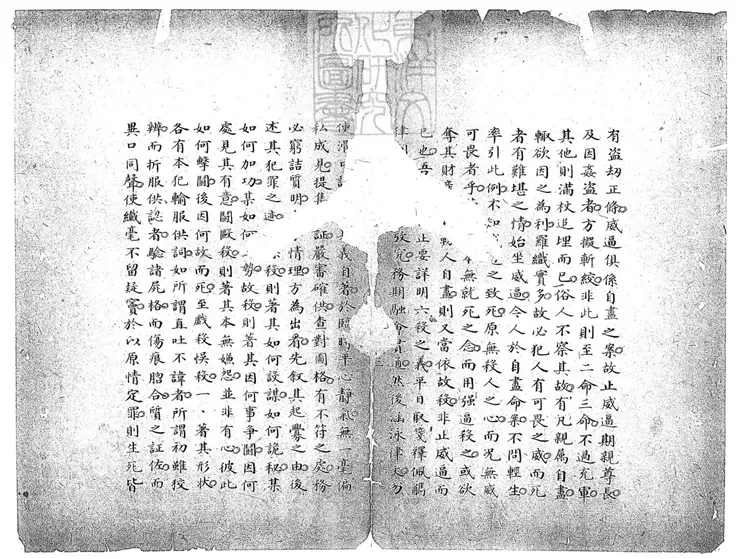 有盗刧正條威逼俱係自盡之案故止威逼期親尊長
及因姦盗者方擬斬絞非此則至二命三命不過充軍
其他則满杖追埋而已俗人不察其故有凡親属自盡
輒欲因之為利羅織實多故必犯人有可畏之威而死
者有難堪之情始坐威逼令人於自盡命案不問輕生
率引此例不知之致死原無殺人之心而况無威
可畏者乎無就死之念而用强逼殺之或欲
奪其財人自盡則又當依故殺非止威逼而
已也吾正要詳明六殺之義平日取箋釋佩觿
律究務期融會貫通然後涵泳律文勿
使滯義自著於臨時平心靜氣無一毫偏
私成見提集証嚴審確供查對圖格有不符之處務
必窮詰質明情理方為出看先叙其起釁之由後
述其犯罪之迹殺則著其如何設謀如何詭秘某
如何加功某如何勢故殺則著其因何事爭鬪因何
處見其有意鬪毆殺則著其本無嫌怨並非有心彼此
如何爭鬪後因何故而死至戲殺悞殺一一著其形狀
各有本犯輸服供詞如所謂直吐不諱者所謂初雖狡
辨而折服供認者驗諸屍格而傷痕脗合質之証佐而
異口同聲使纖毫不留疑竇於以原情定罪則生死皆